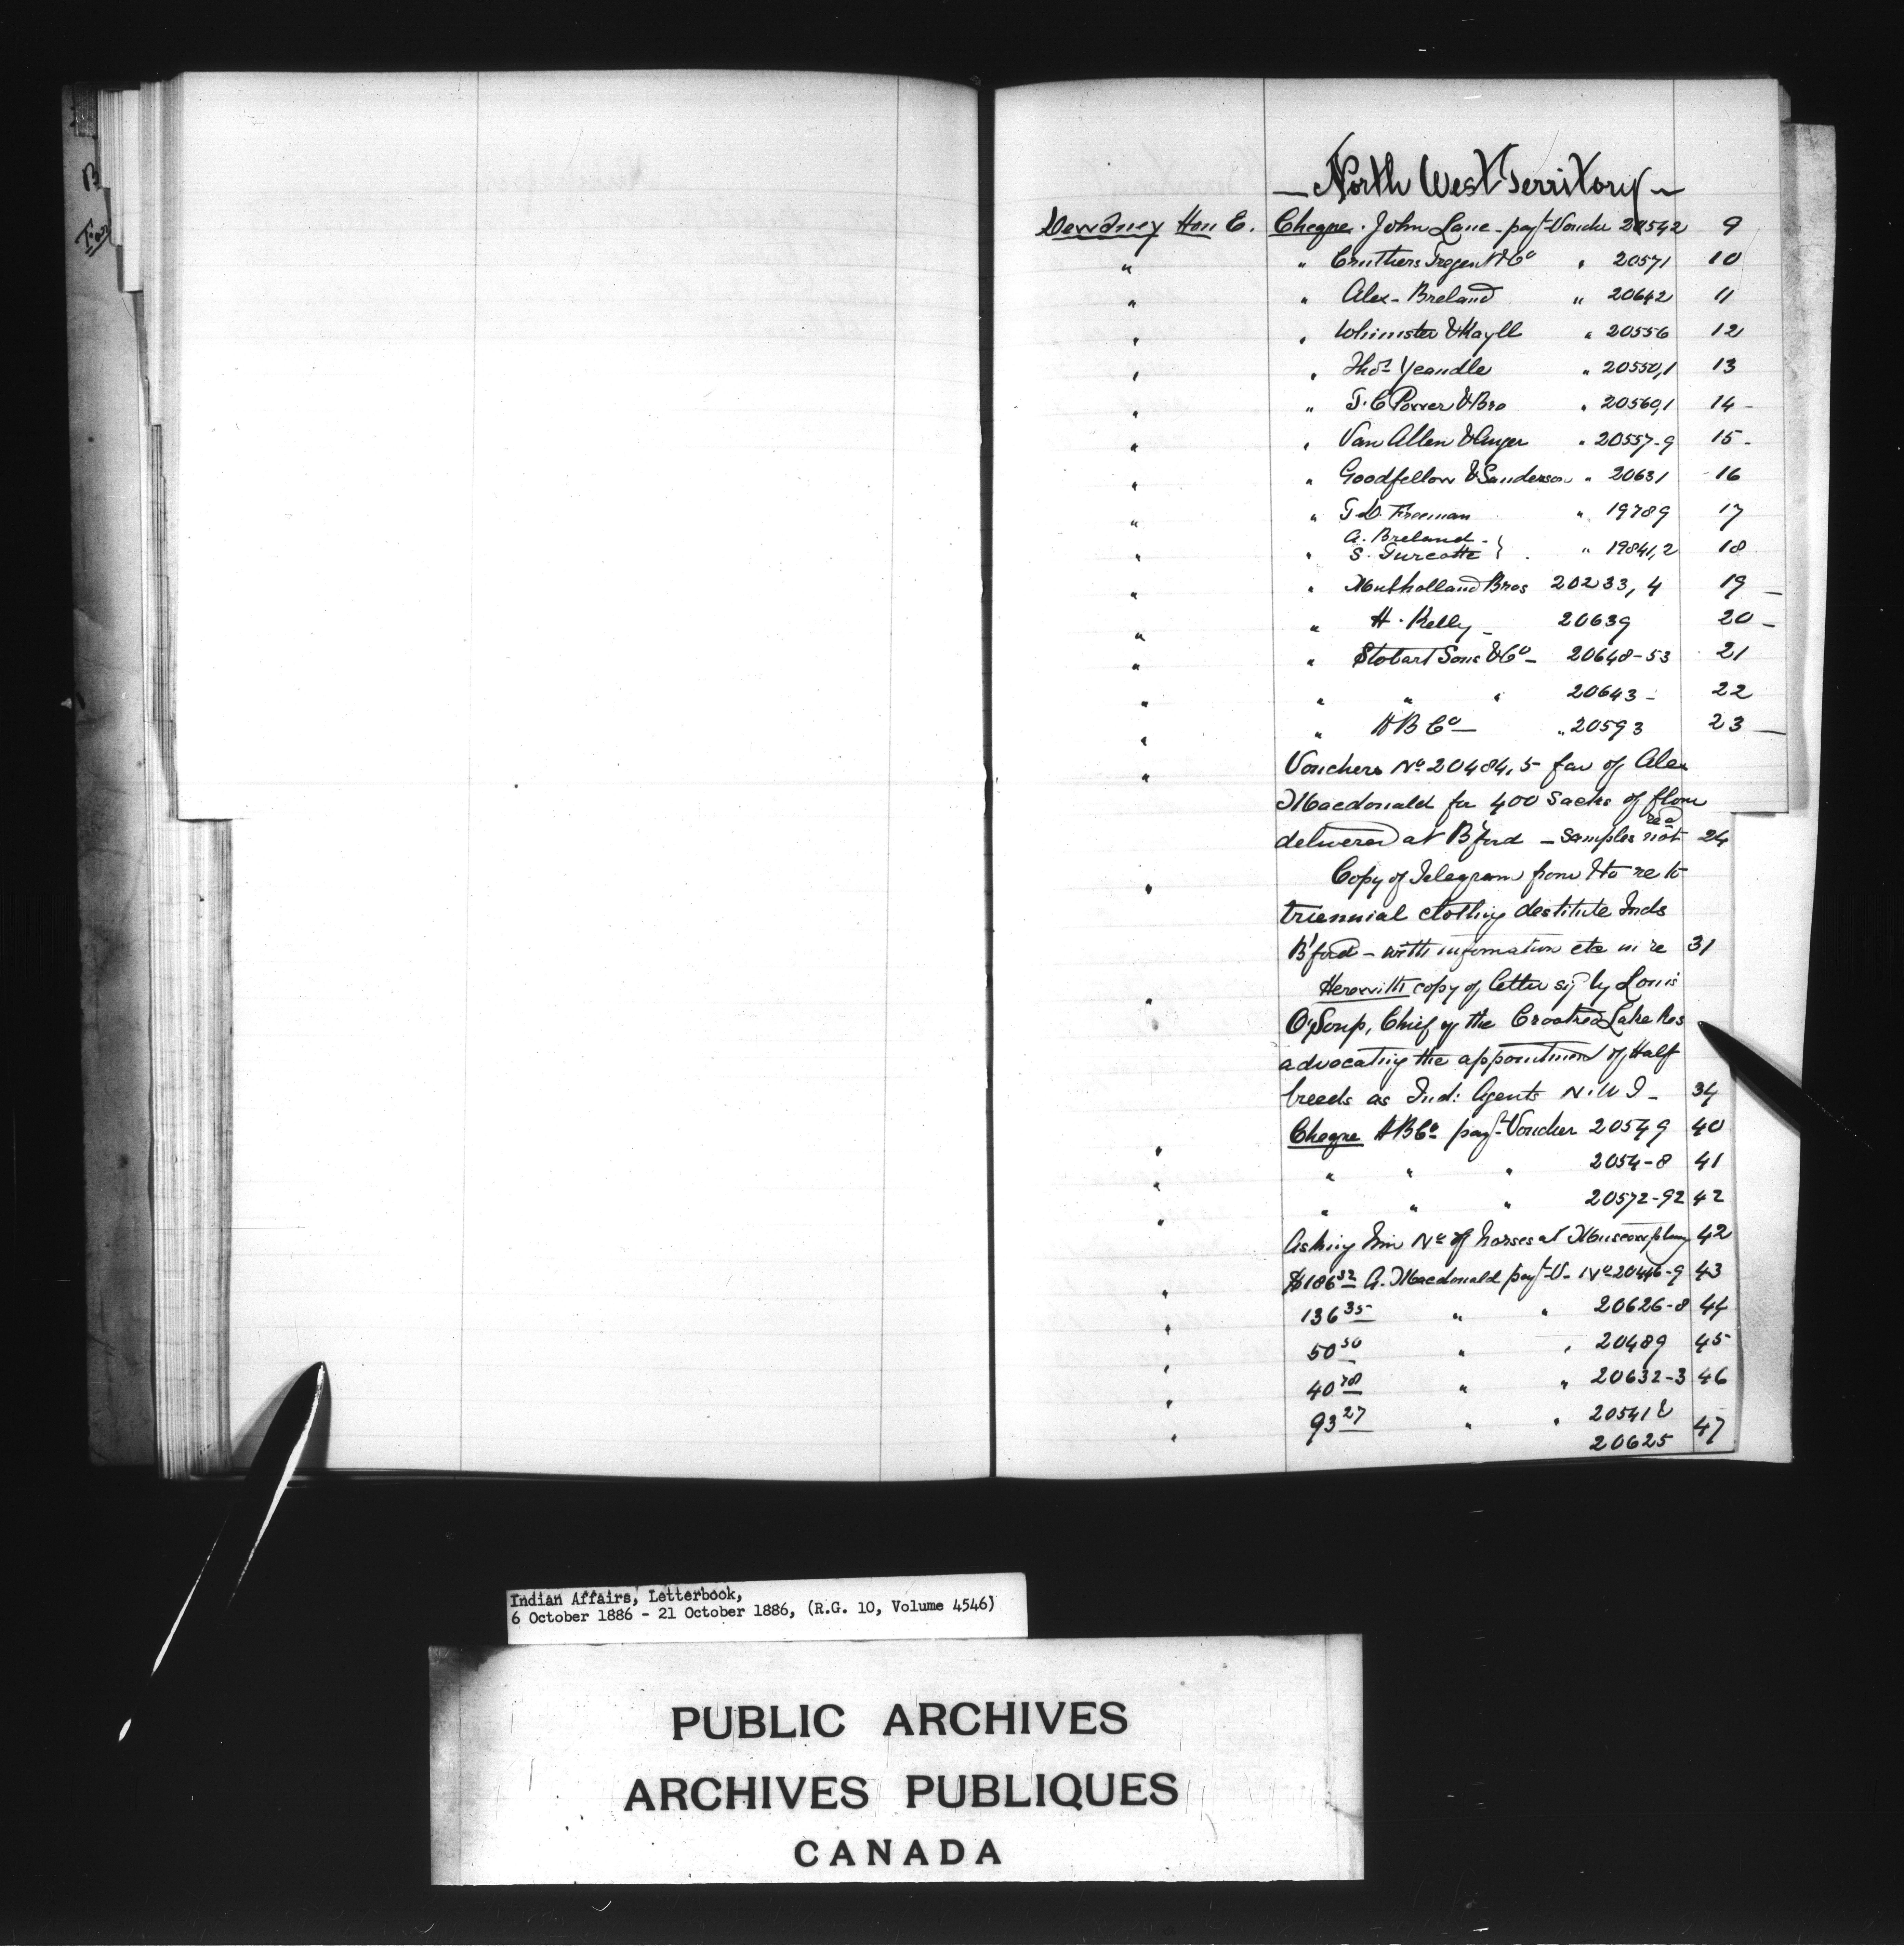 — North West Territory —
Dewdney Hon E. Cheque. John Lane - payt Voucher 20542 9
" " Cruthers Tregent & Co " 20571 10
" " Alex - Breland " 20642 11
" " Whimster & Kayll " 20556 12
" " Thos Yeandle " 20550,1 13
" " T. C Power & Bro " 20560,1 14 -
" " Van Allen & Auger " 20557-9 15 -
" " Goodfellow & Sanderson " 20631 16
" " T. D. Freeman " 19789 17
" " A. Breland -
S. Turcotte } " 19841,2 18
" " Mulholland Bros 20233, 4 19 —
" " H. Kelly - 20639 20 -
" " Stobart Sons & Co - 20648-53 21
" " " " 20643 - 22
" " H B Co — " 20593 23 —
" Vouchers No 20484,5 fav of Alex
Macdonald for 400 Sacks of flour
delivered at B'ford - Samples not recd 24
" Copy of Telegram from & to re to
triennial clothing destitute Inds
B'ford - with information etc in re 31
" Herewith copy of letter sigd by Louis
O'Soup, Chief of the Crooked Lake Res
advocating the appointment of Half
breeds as Ind: Agents N. W T - 34
" Cheque H B Co payt Voucher 20549 40
" " " " 2054-8 41
" " " " 20572-92 42
Asking him No of horses at 42
" $186 32 A. Macdonald payt V. No 20446-9 43
" 136 35 " " 20626-8 44
" 50 50 " " 20489 45
" 40 78 " " 20632-3 46
" 93 27 " " 20541 &
20625 47
B
Indian Affairs, Letterbook,
6 October 1886 - 21 October 1886, (R.G. 10, Volume 4546)
PUBLIC ARCHIVES
ARCHIVES PUBLIQUES
CANADA